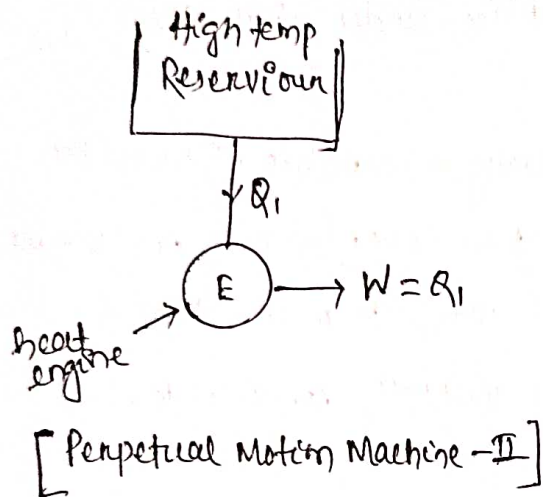 High temp
Reserviour
Q₁
E
W = Q₁
heat
engine
[Perpetual Motion Machine-II]